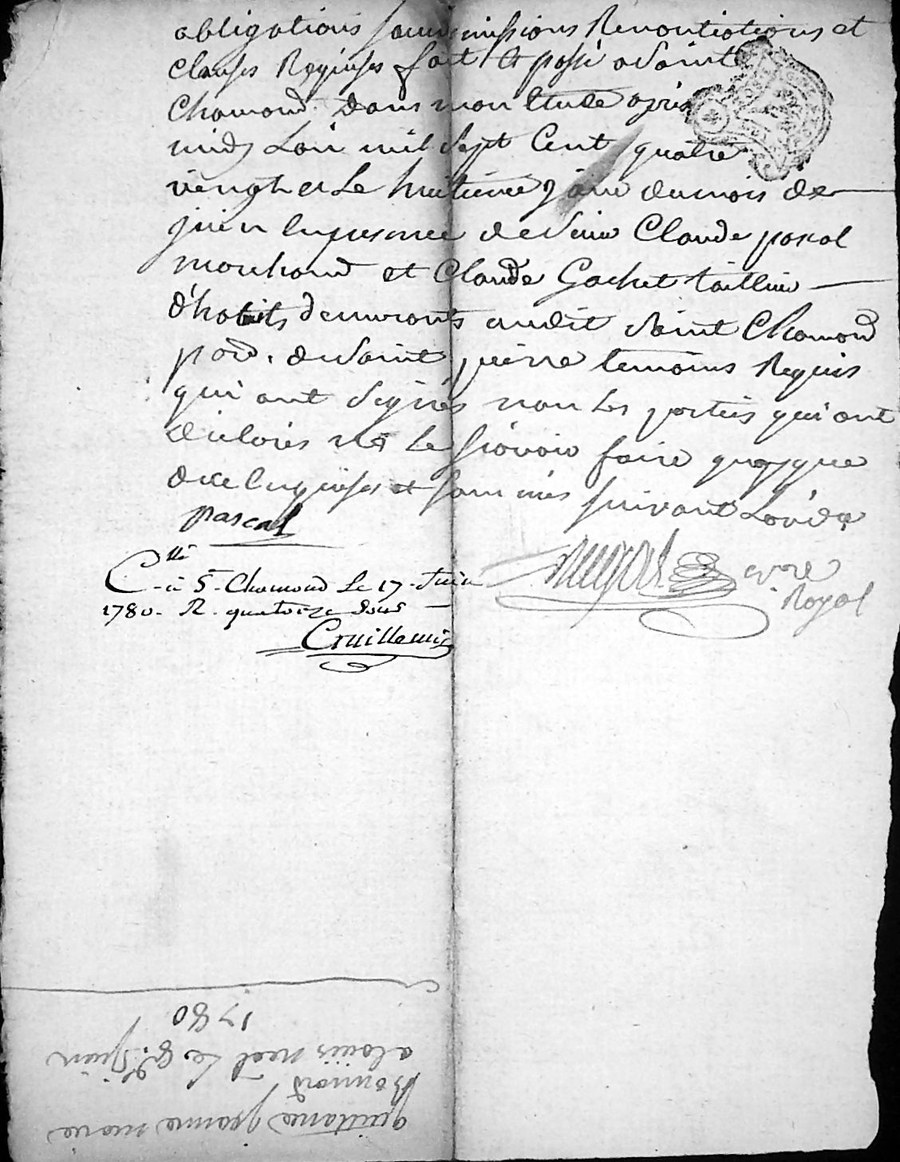 obligations soumissions Renontiations et
clauses Requises fait et passé a Saint
Chamond dans mon Etude apres
midy L'an mil Sept Cent quatre
vengt et Le huitieme jour du mois de
juin En presence de Sieur Claude pascal
marchand et Claude Gachet tailleur
d'habits demurants audit Saint Chamond
pard. de Saint pierre temoins Requis
qui ont Signés non Les parties qui ont
declarés ne Le sçavoir faire quoyque
de ce Enquises et sommées suivant L'orde
pascal
C.llé à St. Chamond Le 17 Juin
1780. R. quatorze sous
no.re
Royal
quittance jeanne marie
a louis neel Le 8. juin
1780